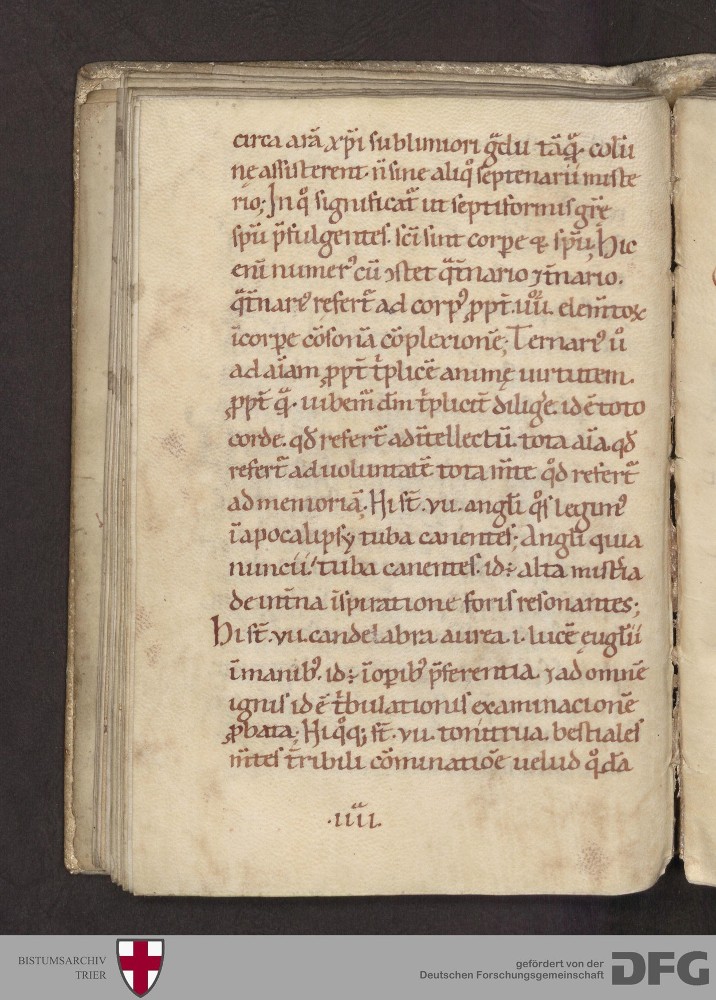 circa arā xp̄i sublimiori g̃du tāq̃. colū
nę assisterent. ñ sine aliqͦ septenarii miste
rio; In qͦ significat̃ ut septiformis gr̃e
sp̄u p̄fulgentes. sc̄i sint corpe ⁊ sp̄u; Hic
enī numer᷒ cū ↄstet q̃t̃nario ⁊ t̃nario.
q̃t̃nari᷒ refert̃ ad corp᷒ ꝓpt̃. iiii. elem̃toꝝ
ī corpe cōsonā cōplexionē; Ternari᷒ ů
ad aīam ꝓpt̃ t̃plicē animę uirtutem.
ꝓpt̃ q̃. iubem̃ dm̄ t̃plicit̃ dilig̃e. id ē toto
corde. qd̄ refert̃ ad ītellectū. tota aīa. qd̄
refert̃ ad uoluntatē tota m̃te qd̄ refert̃
ad memoriā; Hi st̄. vii. angl̄i qͦs legim᷒
ī apocalipsy tuba canentes; Angl̄i quia
nuncii! tuba canentes. id ÷ alta mist̃ia
de int̃na īspiratione foris resonantes;
Hi st̄. vii. candelabra aurea. i. lucē eugl̄ii
ī manib᷒. id ÷ ī opib᷒ p̄ferentia. ⁊ ad omnē
ignis id ē t̃bulationis examinacionē
ꝓbata; Hi qͦq; st̄. vii. tonitrua. bestiales
m̃tes t̃ribili cōminatiōe uelud qͦdā
.iiii.
BISTUMSARCHIV
TRIER
gefördert von der
Deutschen Forschungsgemeinschaft
DFG